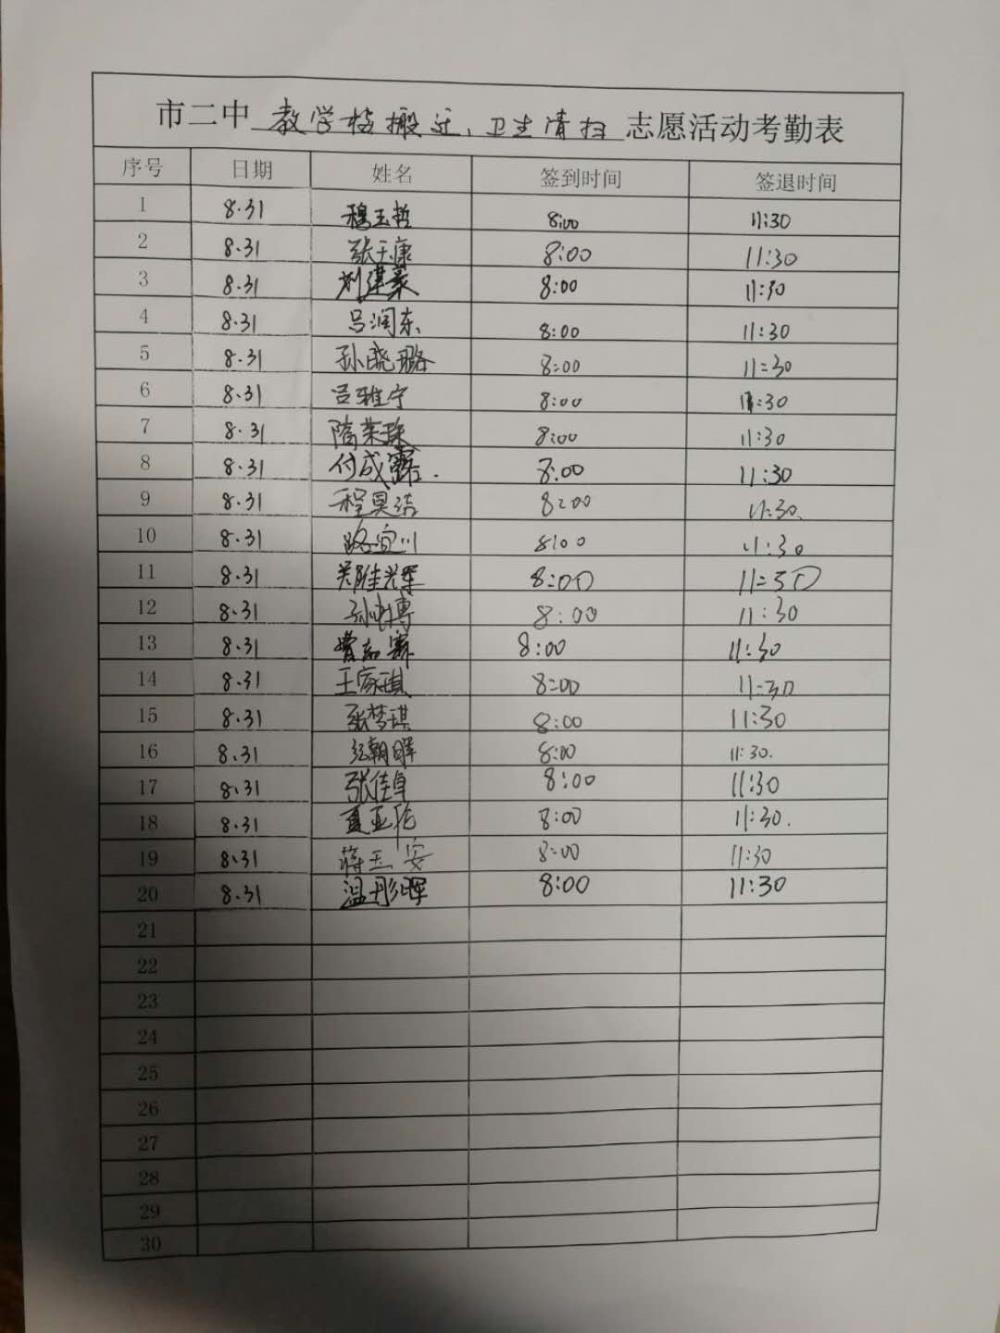 市二中 教学楼搬迁、卫生清扫 志愿活动考勤表
序号 日期 姓名 签到时间 签退时间
1 8.31 穆玉哲 8:00 11:30
2 8.31 张玉康 8:00 11:30
3 8.31 刘建豪 8:00 11:30
4 8.31 吕润东 8:00 11:30
5 8.31 孙晓璐 8:00 11:30
6 8.31 吕雅宁 8:00 11:30
7 8.31 隋荣珠 8:00 11:30
8 8.31 付成露. 8:00 11:30
9 8.31 程昊洁 8:00 11:30
10 8.31 路宜川 8:00 11:30
11 8.31 8:00 11:30
12 8.31 8:00 11:30
13 8.31 8:00 11:30
14 8.31 王家琪 8:00 11:30
15 8.31 张梦琪 8:00 11:30
16 8.31 8:00 11:30.
17 8.31 张佳卓 8:00 11:30
18 8.31 8:00 11:30.
19 8.31 蒋玉安 8:00 11:30
20 8.31 温彤晖 8:00 11:30
21
22
23
24
25
26
27
28
29
30